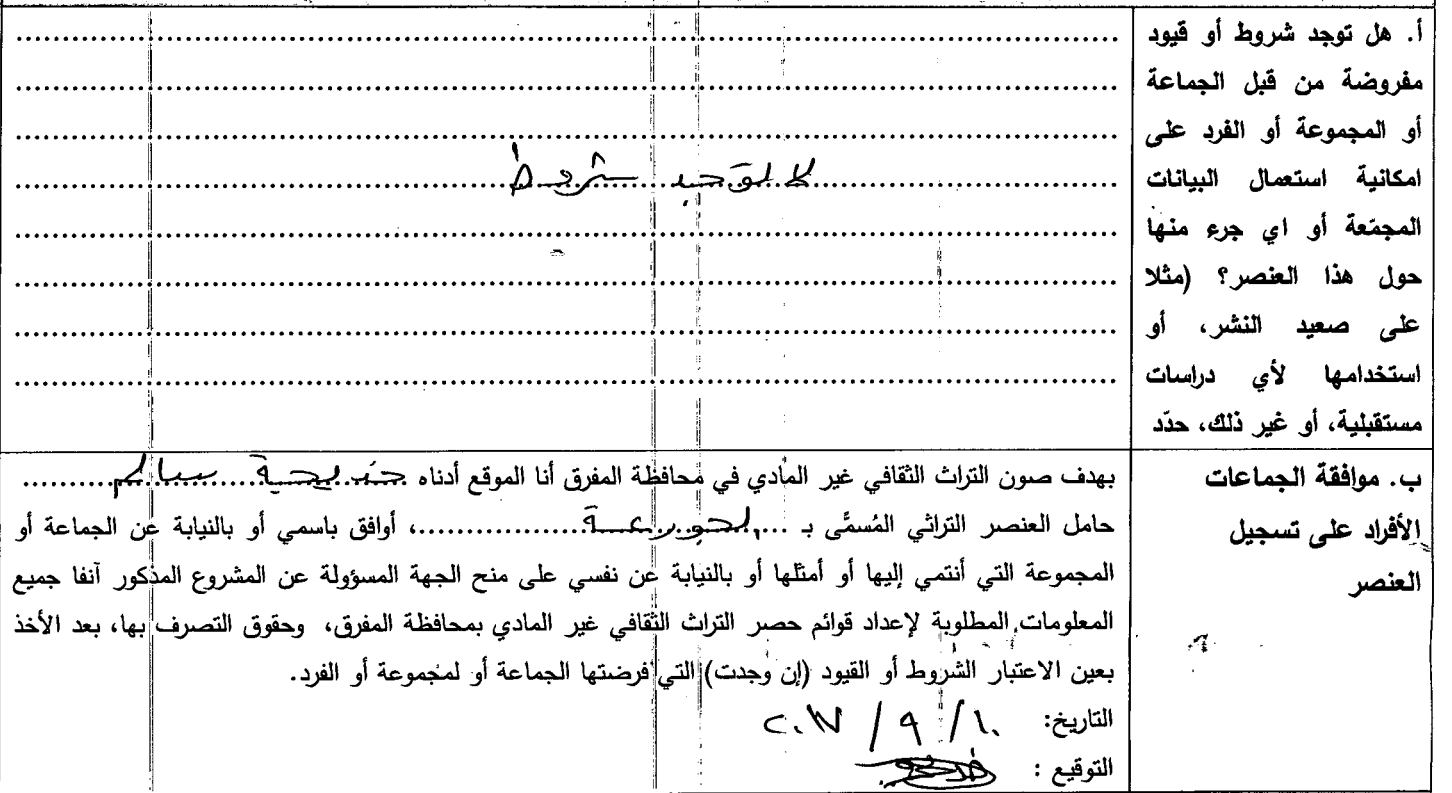 أ. هل توجد شروط أو قيود
مفروضة من قبل الجماعة
أو المجموعة أو الفرد على
امكانية استعمال البيانات
المجمّعة أو اي جرء منها
حول هذا العنصر؟ (مثلا
على صعيد النشر، أو
استخدامها لأي دراسات
مستقبلية، أو غير ذلك، حدّد
لا يوجد شروط
ب. موافقة الجماعات
الأفراد على تسجيل
العنصر
بهدف صون التراث الثقافي غير المادي في محافظة المفرق أنا الموقع أدناه خديجة سالم
حامل العنصر التراثي المُسمَّى بـ ...............، أوافق باسمي أو بالنيابة عن الجماعة أو
المجموعة التي أنتمي إليها أو أمثلها أو بالنيابة عن نفسي على منح الجهة المسؤولة عن المشروع المذكور آنفا جميع
المعلومات المطلوبة لإعداد قوائم حصر التراث الثقافي غير المادي بمحافظة المفرق، وحقوق التصرف بها، بعد الأخذ
بعين الاعتبار الشروط أو القيود (إن وجدت) التي فرضتها الجماعة أو لمجموعة أو الفرد.
التاريخ: ١٠ / ٩ / ٢٠١٧
التوقيع :